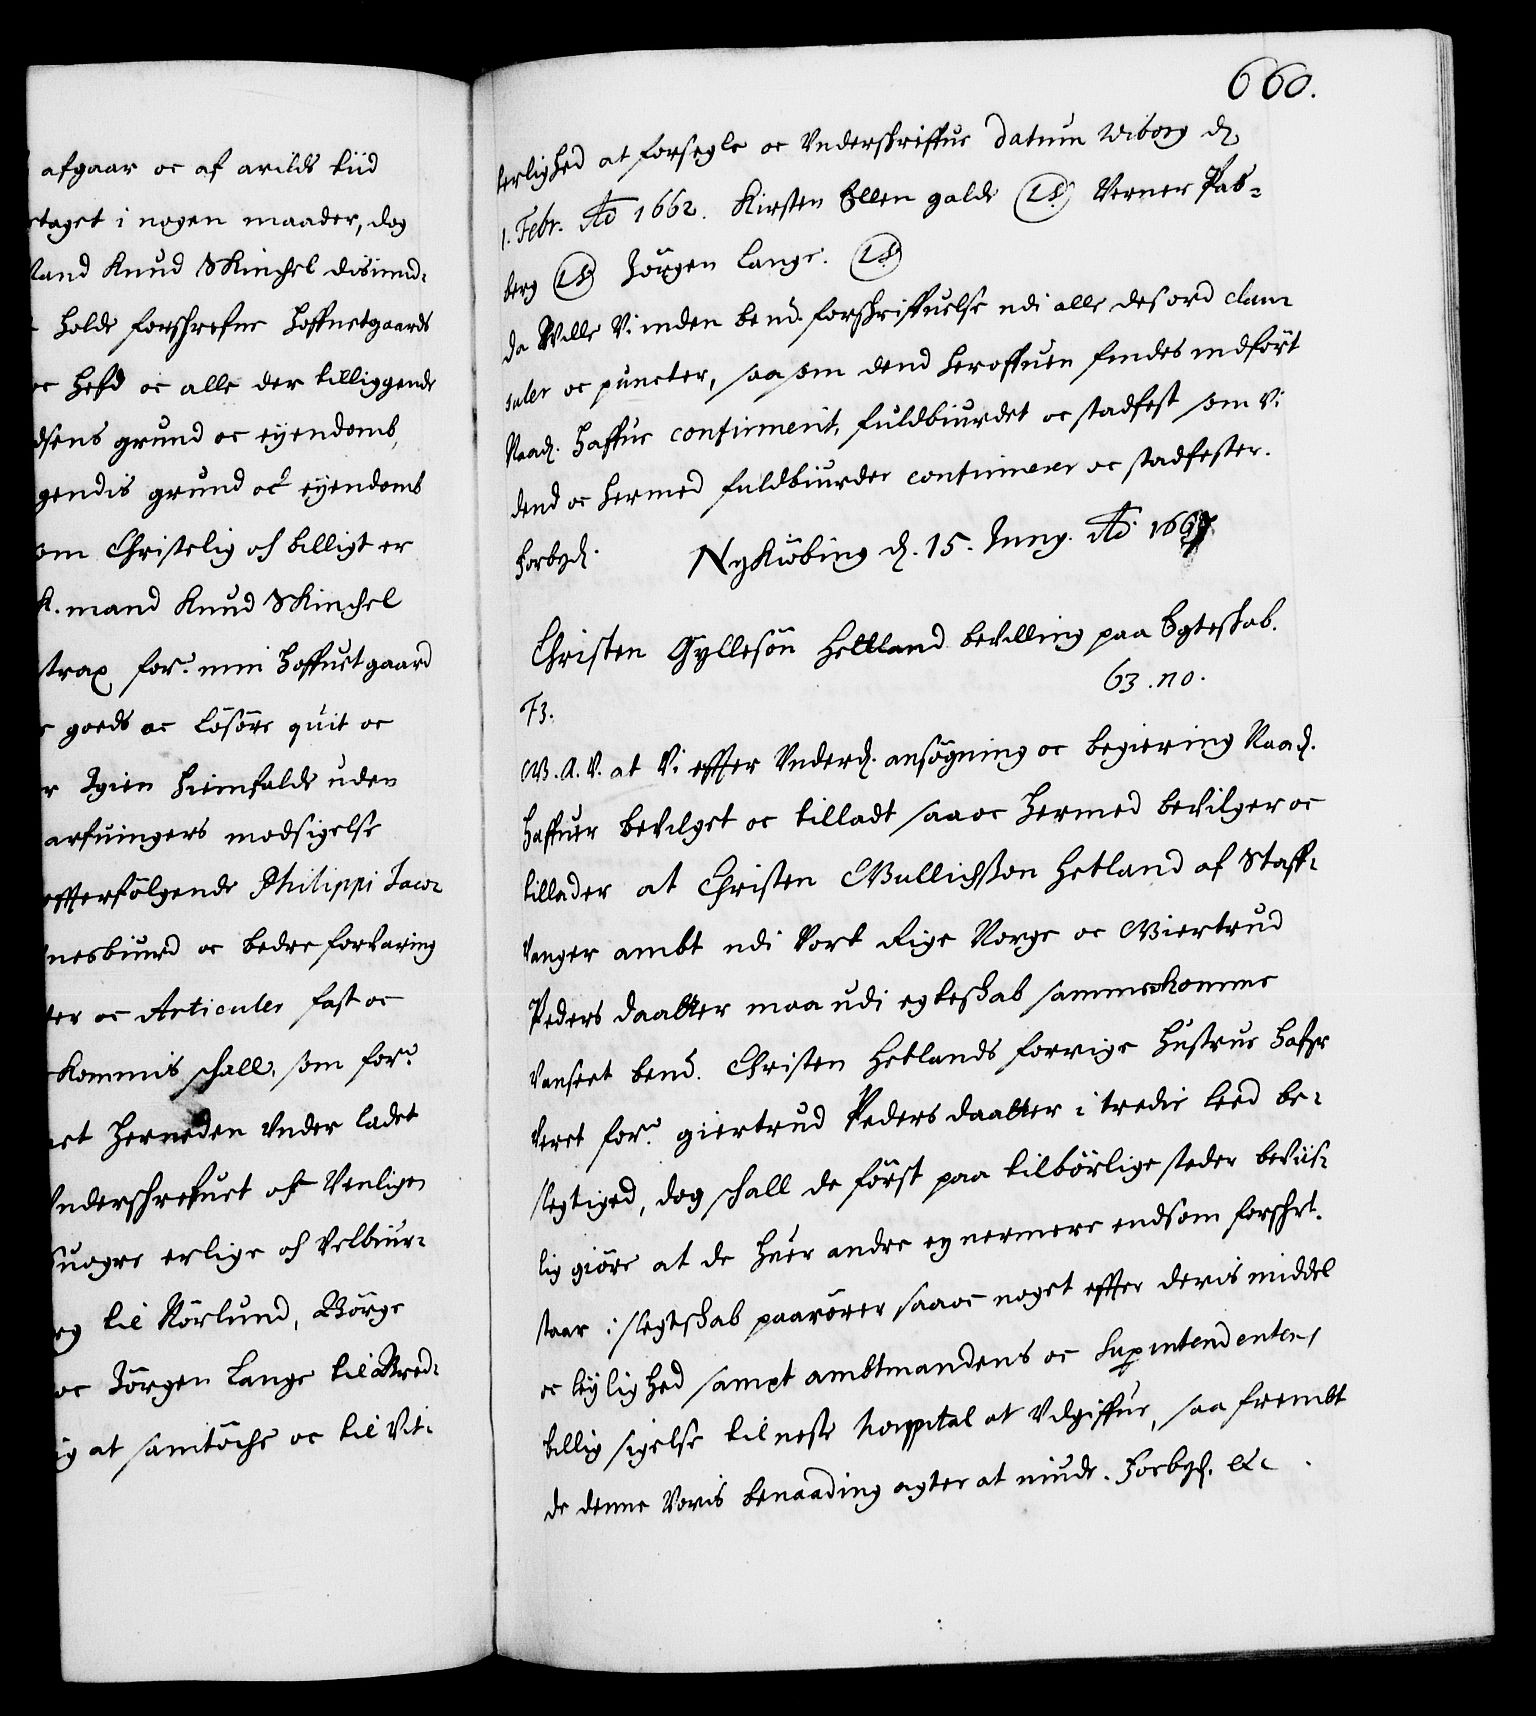 afgaar oc af arilds tiid
rtaget i nogen maader, dog
land Knud Skinchel disimid-
holde forschrefne Hoffuetgaards
oc Hefd oc alle der tilliggende
dsens grund oc eyendomb,
gendis grund oc eyendomb
om Christelig och billigt er
K. mand Knud Skinchel
strax for.ne min Hoffuetgaard
goeds oc Lösöre quit oc
r Igien Hiemfalde uden
arfuingers modsigelse
effterfölgende Philippi Jaco-
nesbiurd oc bedre forvaring
ter oc Articuler fast oc
Kommis schall, som for.ne
et Herneden under ladet
Underschrefuet och Venligen
Suogre erlige och Velbiur-
rg til Nörlund, Börge
oc Jörgen Lange til Bred-
ig at samtöche oc til Vit-
660.
terlighed at forsegle oc Underschriffue datum Wiborg d.
1. Febr. Ao 1662. Kirsten Ellen galde (LS) Verner Pas-
berg (LS) Jörgen Lange. (LS)
da Wille Vi inden bemd. forschriffuelse udi alle des ord clau-
suler oc puncter, saa som dend heroffuen findes indfört
Naad. Haffue confirmerit, fuldbiurdet oc stadfest som Vi
dend oc hermed fuldbiurder confirmerer oc stadfester.
Forbyd. Nykiöbing d. 15. Juny. Ao 1667
Christen Gyllesön Hetland bevilling paa Egteskab.
63. no.
F3.
G. A. V. at Vi effter Underd. ansögning oc begiering Naad.
Haffuer bevilget oc tilladt saa oc Hermed bevilger oc
tillader at Christen Gullichsson Hetland af Staff-
vanger ambt udi Vort Rige Norge oc Giertrud
Peders daatter maa udi egteskab sammenkomme
Vanseet bemd. Christen Hetlands forrige Hustrue Hafr
veret for.ne giertrud Peders daatter i tredie leed be-
slegtiged, dog schall de först paa tilbörlige steder beviis-
lig giöre at de Huer andre ey nermere end som forschrt.
staar i slegtskab paarörer saa oc noget effter deris middel
oc leylighed sampt ambtmandens oc Supintendentens
billig sigelse til neste hospital at Udgiffue, saa frembt
de denne Voris benaading agter at niude. Forbyd. &c.